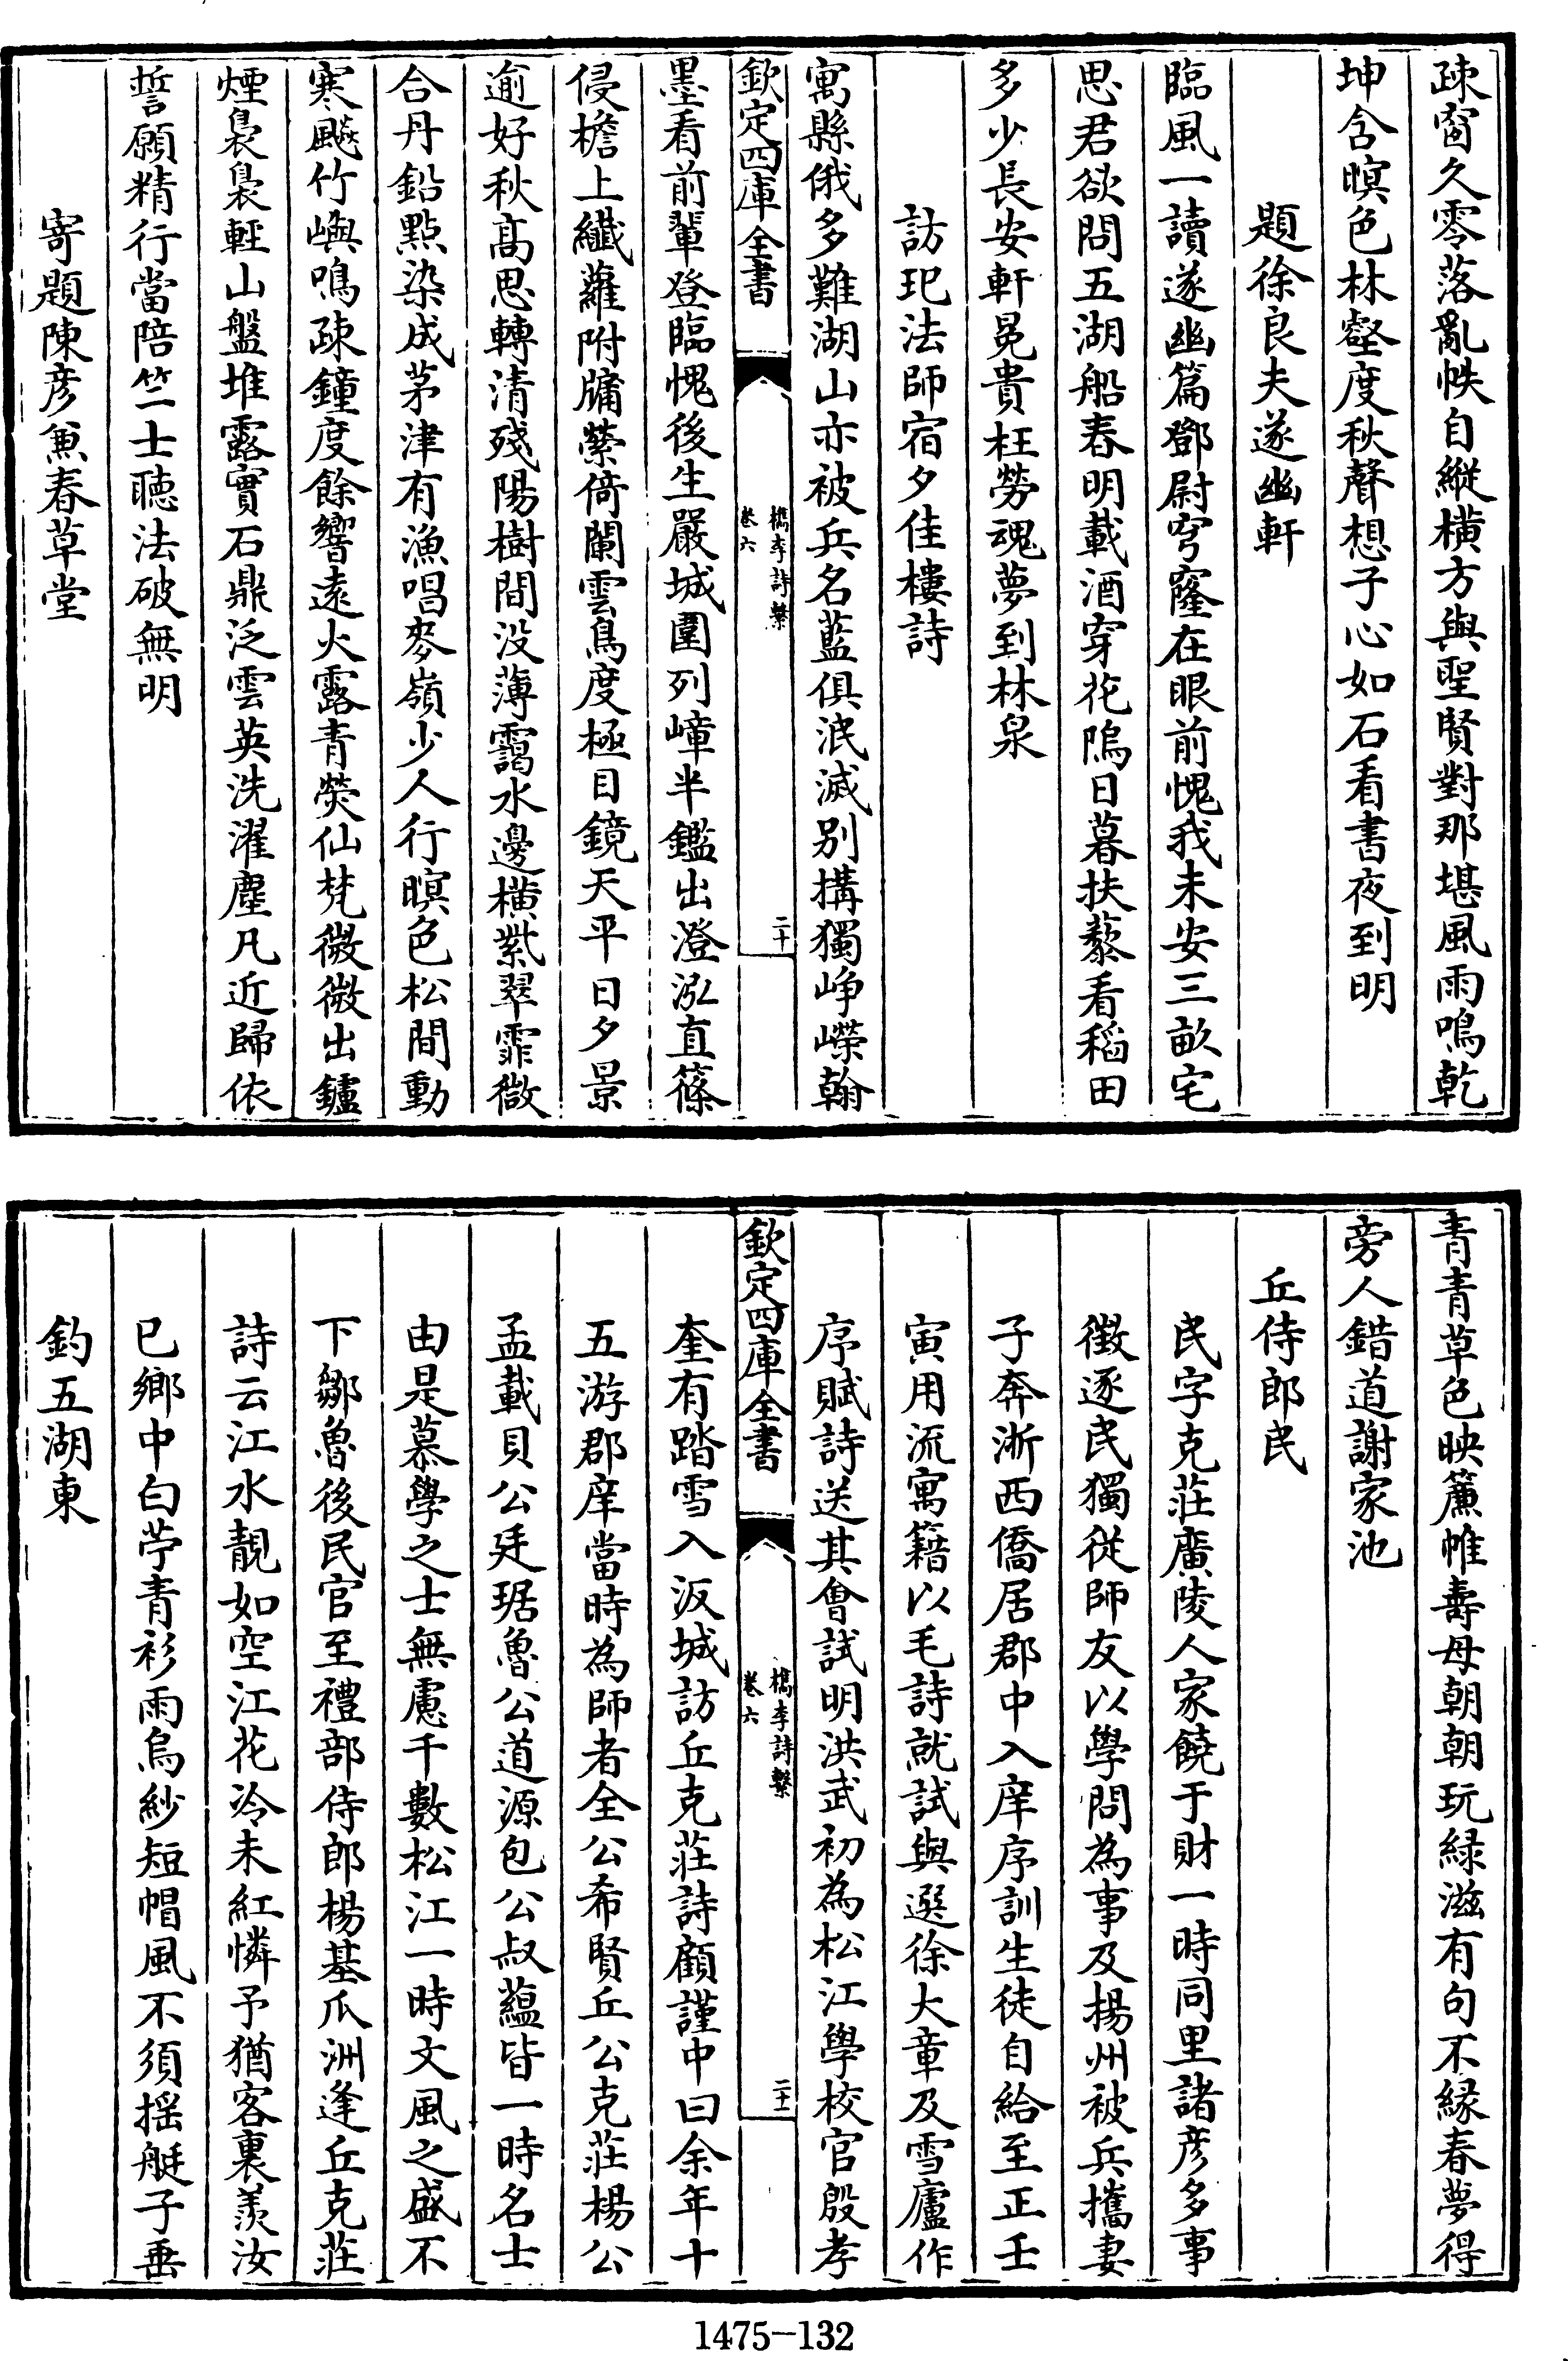 疎窗久零落亂帙自縱橫方與聖賢對那堪風雨鳴乾
坤含暝色林壑度秋聲想子心如石看書夜到明
題徐良夫遂幽軒
臨風一讀遂幽篇鄧尉穹窿在眼前愧我未安三畝宅
思君欲問五湖船春明載酒穿花塢日暮扶藜看稻田
多少長安軒冕貴枉勞魂夢到林泉
訪玘法師宿夕佳樓詩
寓縣俄多難湖山亦被兵名藍俱泯滅别搆獨崢嶸翰
欽定四庫全書
檇李詩繫
卷六
二十
墨看前輩登臨愧後生嚴城圍列嶂半鑑出澄泓直篠
侵檐上纖蘿附牖縈倚闌雲鳥度極目鏡天平日夕景
逾好秋髙思轉清殘陽樹間没薄靄水邊橫紫翠霏微
合丹鉛點染成茅津有漁唱麥嶺少人行暝色松間動
寒飈竹嶼鳴疎鐘度餘響遠火露青熒仙梵微微出鑪
煙裊裊輕山盤堆露實石鼎泛雲英洗濯塵凡近歸依
誓願精行當陪竺士聽法破無明
寄題陳彦魚春草堂
青青草色映簾帷壽母朝朝玩緑滋有句不緣春夢得
旁人錯道謝家池
丘侍郎民
民字克莊廣陵人家饒于財一時同里諸彦多事
徵逐民獨從師友以學問為事及揚州被兵攜妻
子奔淅西僑居郡中入庠序訓生徒自給至正壬
寅用流寓籍以毛詩就試與選徐大章及雪廬作
序賦詩送其會試明洪武初為松江學校官殷孝
欽定四庫全書
檇李詩繫
卷六
二十一
奎有踏雪入汳城訪丘克莊詩顧謹中曰余年十
五游郡庠當時為師者全公希賢丘公克莊楊公
孟載貝公廷琚魯公道源包公叔藴皆一時名士
由是慕學之士無慮千數松江一時文風之盛不
下鄒魯後民官至禮部侍郎楊基爪洲逢丘克莊
詩云江水靚如空江花冷未紅憐予猶客裏羨汝
已鄉中白苧青衫雨烏紗短帽風不須摇艇子垂
釣五湖東
1475-132